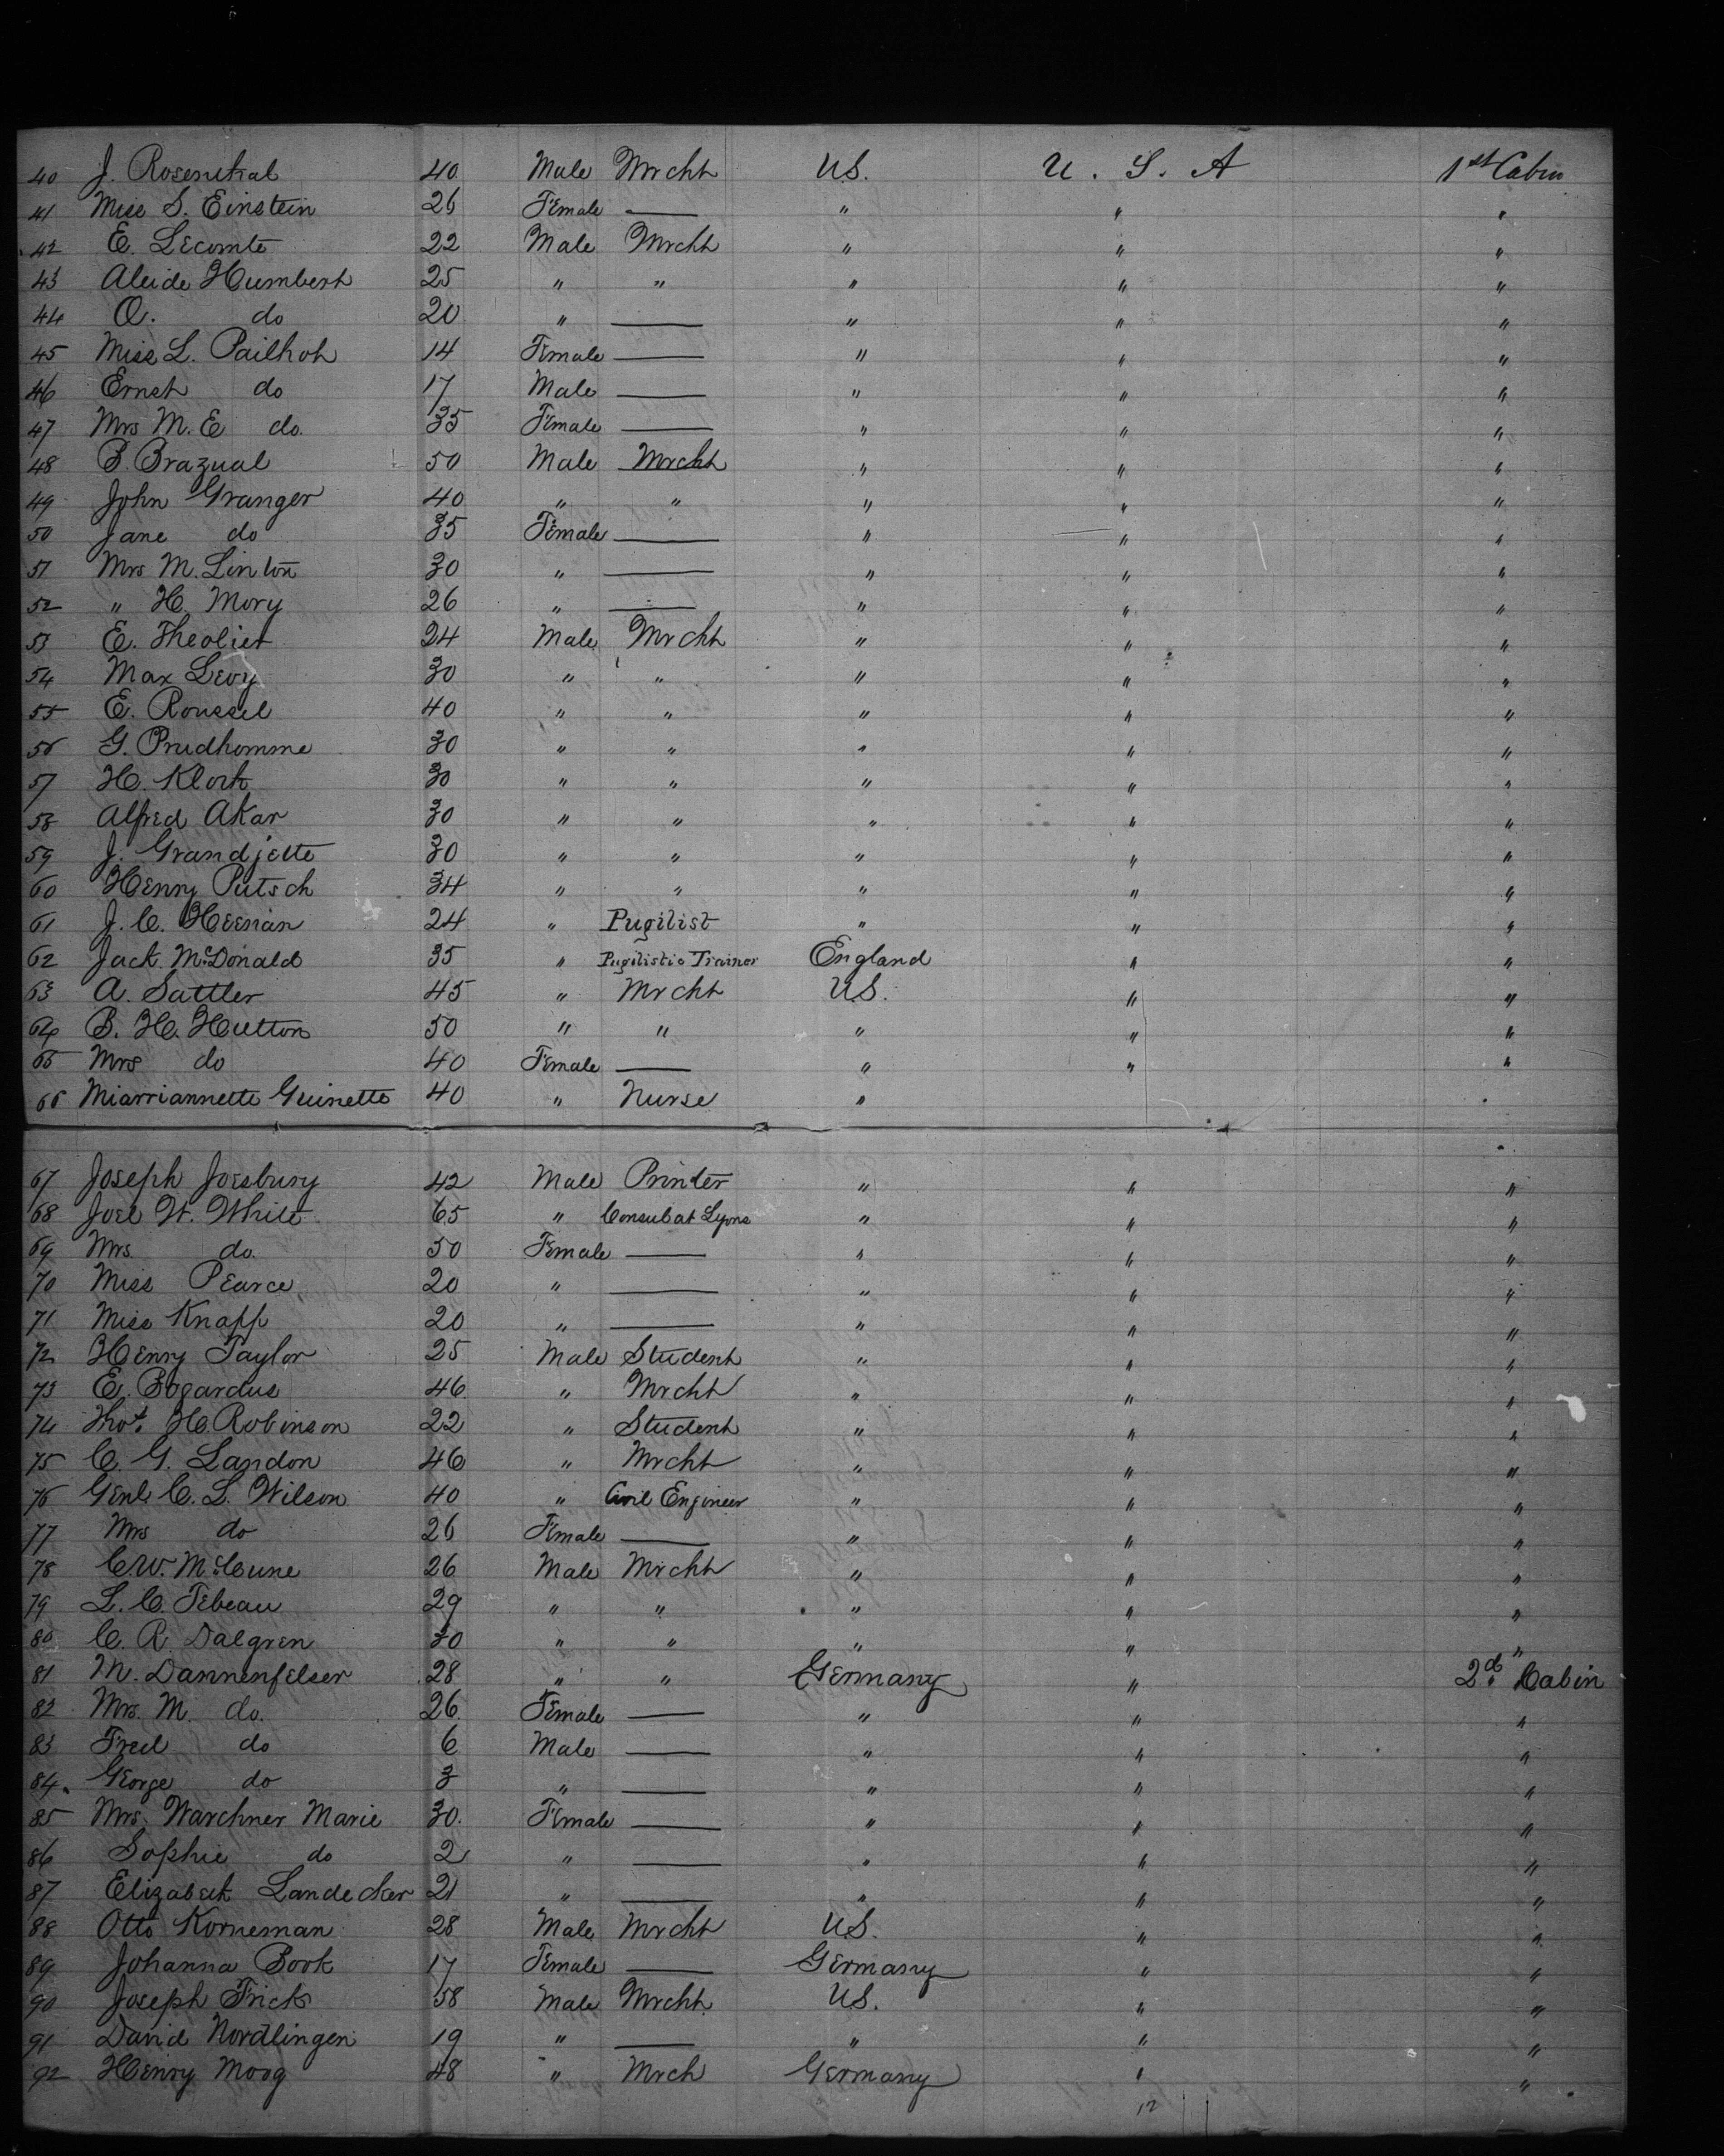 40 J. Rosenthal 40 Male Mrcht U.S. U. S. A 1st Cabin
41 Miss S. Einstein 26 Female — " " "
42 E. Lecomte 22 Male Mrcht " " "
43 Aleide Humbert 25 " " " " "
44 O. do 20 " — " " "
45 Miss L. Pailhoh 14 Female — " " "
46 Ernst do 17 Male — " " "
47 Mrs M. E do. 35 Female — " " "
48 B. Brazual 50 Male Mrcht " " "
49 John Granger 40 " " " " "
50 Jane do 35 Female — " " "
51 Mrs M. Linton 30 " — " " "
52 " H. Mory 26 " — " " "
53 E. Theoliet 24 Male Mrcht " " "
54 Max Levy 30 " " " " "
55 E. Roussel 40 " " " " "
56 G. Prudhomme 30 " " " " "
57 H. Klock 30 " " " " "
58 Alfred Akar 30 " " " " "
59 J. Grandjette 30 " " " " "
60 Henry Putsch 34 " " " " "
61 J. C. Heenan 24 " Pugilist " " "
62 Jack McDonald 35 " Pugilistic Trainer England " "
63 A. Sattler 45 " Mrcht U.S. " "
64 B. H. Hutton 50 " " " " "
65 Mrs do 40 Female — " " "
66 Miarriannette Guinette 40 " Nurse " "
67 Joseph Joesbury 42 Male Printer " " "
68 Joel W. White 65 " Consul at Lyons " " "
69 Mrs do. 50 Female — " " "
70 Miss Pearce 20 " — " " "
71 Miss Knapp 20 " — " " "
72 Henry Taylor 25 Male Student " " "
73 E. Bogardus 46 " Mrcht " " "
74 Thos. H. Robinson 22 " Student " " "
75 C. G. Landon 46 " Mrcht " " "
76 Genl. C. L. Wilson 40 " Civil Engineer " " "
77 Mrs do 26 Female — " " "
78 C.W. McCune 26 Male Mrcht " " "
79 L. C. Tebeau 29 " " " " "
80 C. R. Dalgren 30 " " " " "
81 M. Dannenfelser 28 " " Germany " 2d. Cabin
82 Mrs. M. do. 26 Female — " " "
83 Fred do 6 Male — " " "
84 George do 3 " — " " "
85 Mrs. Warchner Marie 30. Female — " " "
86 Sophie do 2 " — " " "
87 Elizabeth Landecker 21 " — " " "
88 Otto Korneman 28 Male Mrcht U.S. " "
89 Johanna Book 17 Female — Germany " "
90 Joseph Frick 58 Male Mrcht U.S. " "
91 David Nordlingen 19 " — " " "
92 Henry Moog 48 " Mrch Germany " "